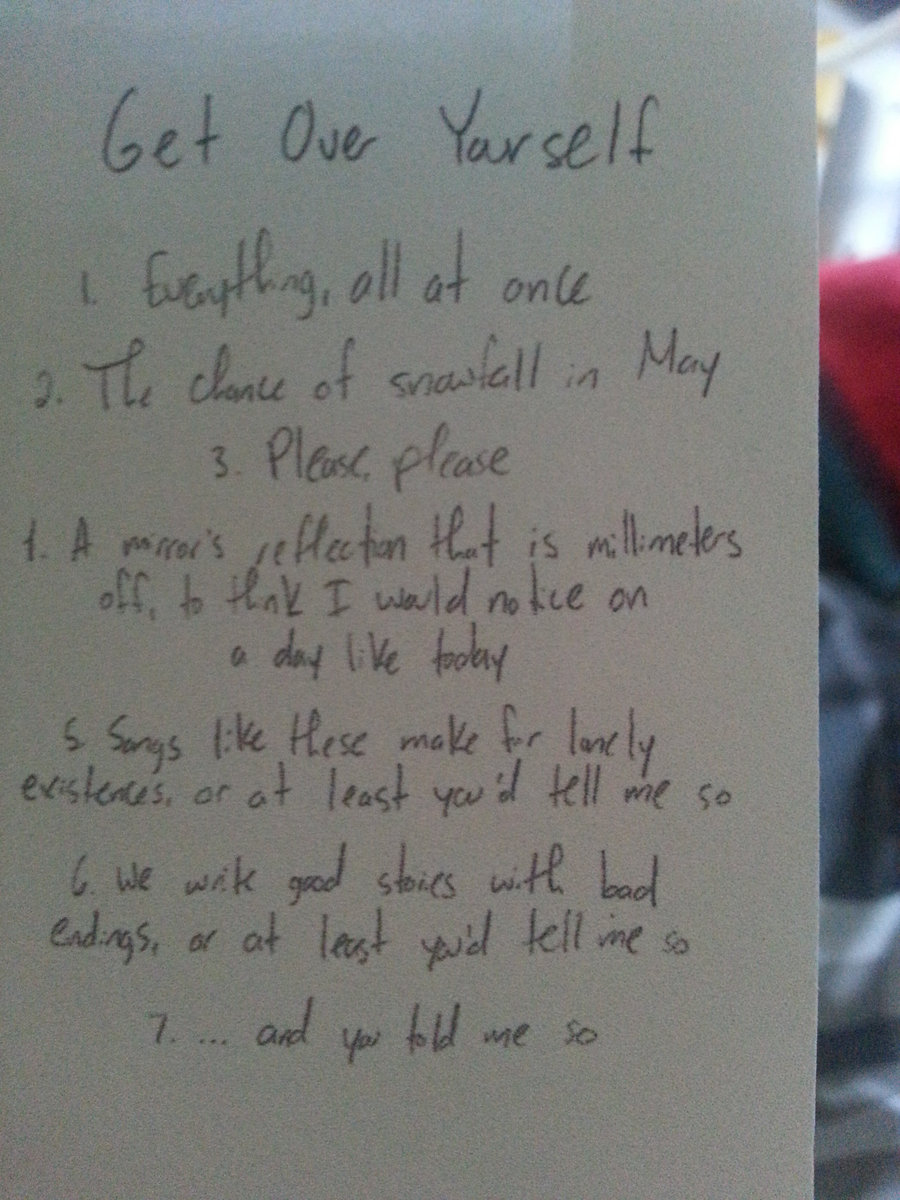 Get Over Yourself
1. Everything, all at once
2. The chance of snowfall in May
3. Please, please
4. A mirror's reflection that is millimeters
off, to think I would notice on
a day like today
5. Songs like these make for lonely
existences, or at least you'd tell me so
6. We write good stories with bad
endings, or at least you'd tell me so
7. ... and you told me so